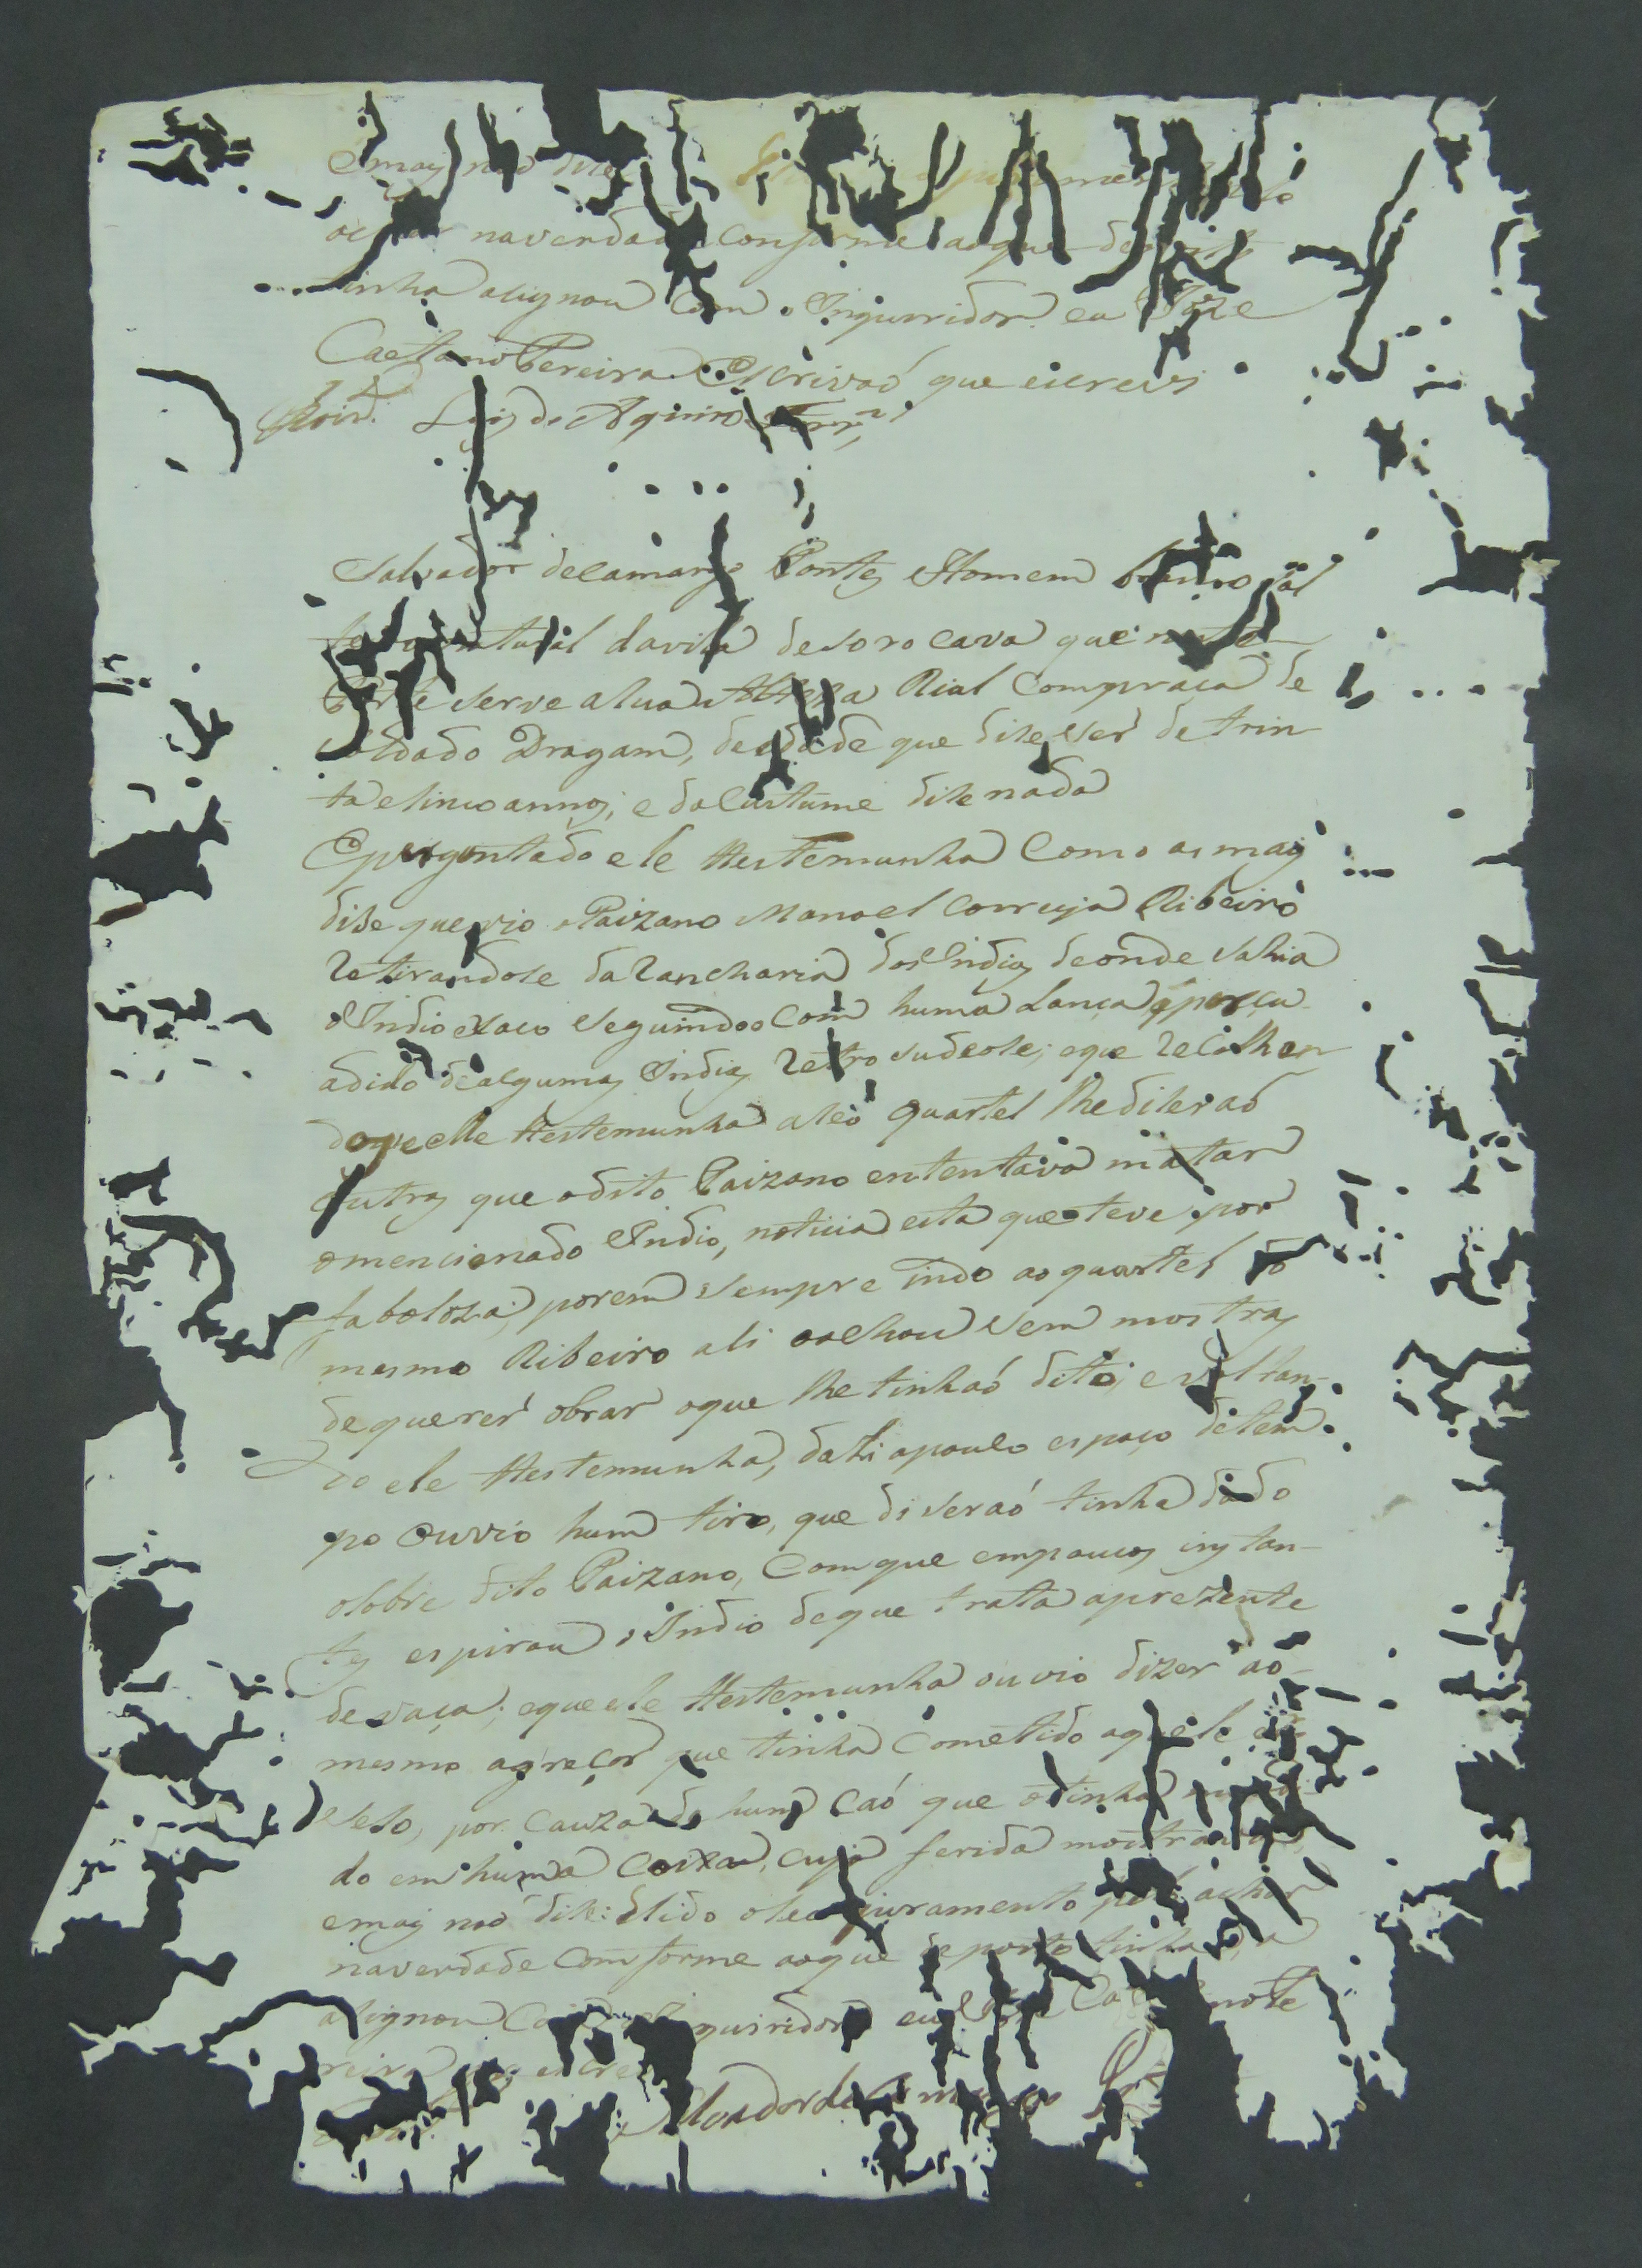 Emaiz não dise
na verdade conforme ao que
tinha asignou com o Inquiridor eu Joze
Caetano Pereira Escrivaõ que escrevy
Luiz de Aquirro
Salvador de Camargo Pontes Homem branco sol
natural da vila de Sorocava que neste
serve a Sua Alteza Rial Com praca de
soldado Dragam, de edade que dise ser de trin
ta e sinco annos, e do Custume dise nada
E perguntado ele ttestemunha Como as mais
dise que vio o Paizano Manoel Correya Ribeiro
Retirandose da Rancharia dos Indios de onde sahia
o Indio seguindoo Com huma Lança e persu
adido de alguns Indios Retrosudeose; e que Recolhen
do elle ttestemunha a seo quartel lhe diseraõ
outros que o dito Paizano ententava matar
o mencionado Indio, noticia esta que teve por
faboloza; porem sempre indo ao quartel do
mesmo Ribeiro ali o achou sem mostras
de querer obrar o que lhe tinhaõ dito; e voltan-
do ele ttestemunha, dahi a pouco espaço de tem
po Ouvio hum tiro, que diseraõ tinha dado
o sobre dito Paizano, Com que em poucos instan-
tes espirou o Indio de que trata a prezente
devaça; e que ele ttestemunha ouvio dizer ao
mesmo agreçor que tinha Cometido aquele
seso, por Cauza de hum Caõ que o tinha
do em huma Coixa, cuja ferida mostrava
e mais naõ dise: E lido o seo juramento por achar
na verdade Com forme ao que deposto tinha, a
signou Com o Inquiridor eu Joze Caetano Pe
reira que escrevy
Salvador de Camargo